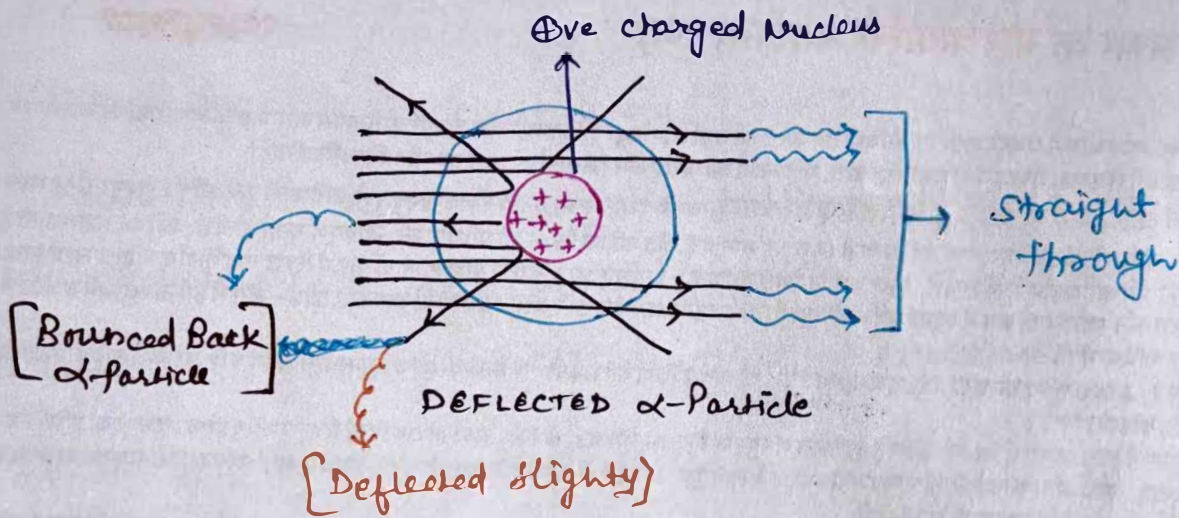 ⊕ve charged Nucleus
+ +
+ + + +
+ +
Straight
through
[Bounced Back
α-Particle]
DEFLECTED α-Particle
[Deflected slighty]